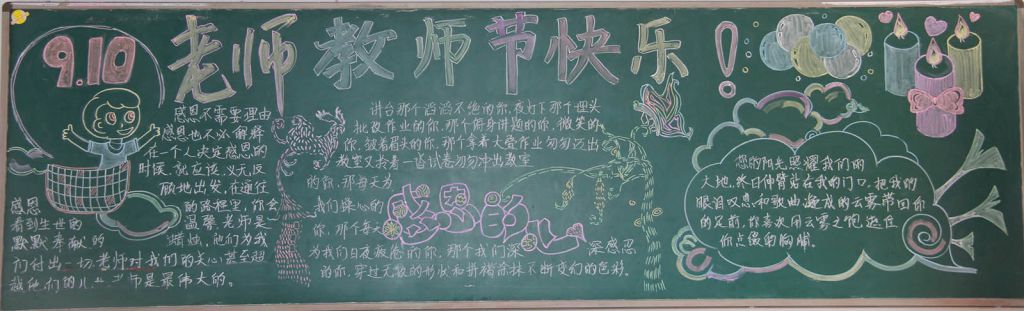 9.10
老师教师节快乐!
感恩不需要理由
感恩也不必解释
在一个人决定感恩的
时候,就应该义无反
顾地出发,在通往
的路程里,你会
温馨,老师是
蜡烛,他们为我
感恩
看到生世的
默默奉献的
门付出一切,老师对我们的关心甚至超
越他们的儿 师是最伟大的。
讲台那个滔滔不绝的你,夜幻下那个埋头
批改作业的你,那个俯身讲题的你,微笑的
你,皱着眉头的你,那个拿着大叠作业匆匆迈出
教室又拎着一首试卷匆匆冲出教室
的你,那每天为
我们操心的
你,那个每天
为我们日夜疲惫的你,那个我们深 深感恩
的你,穿过无数的形状和拼凑涂抹不断变幻的色彩。
感恩的心
您的阳光照耀我们的
大地,终日伸臂站在我的门口,把我的
眼泪叹息和歌曲造成的云雾带回你
的足前,你喜欢用云雾之饱 遮住
你点缀的胸脯。